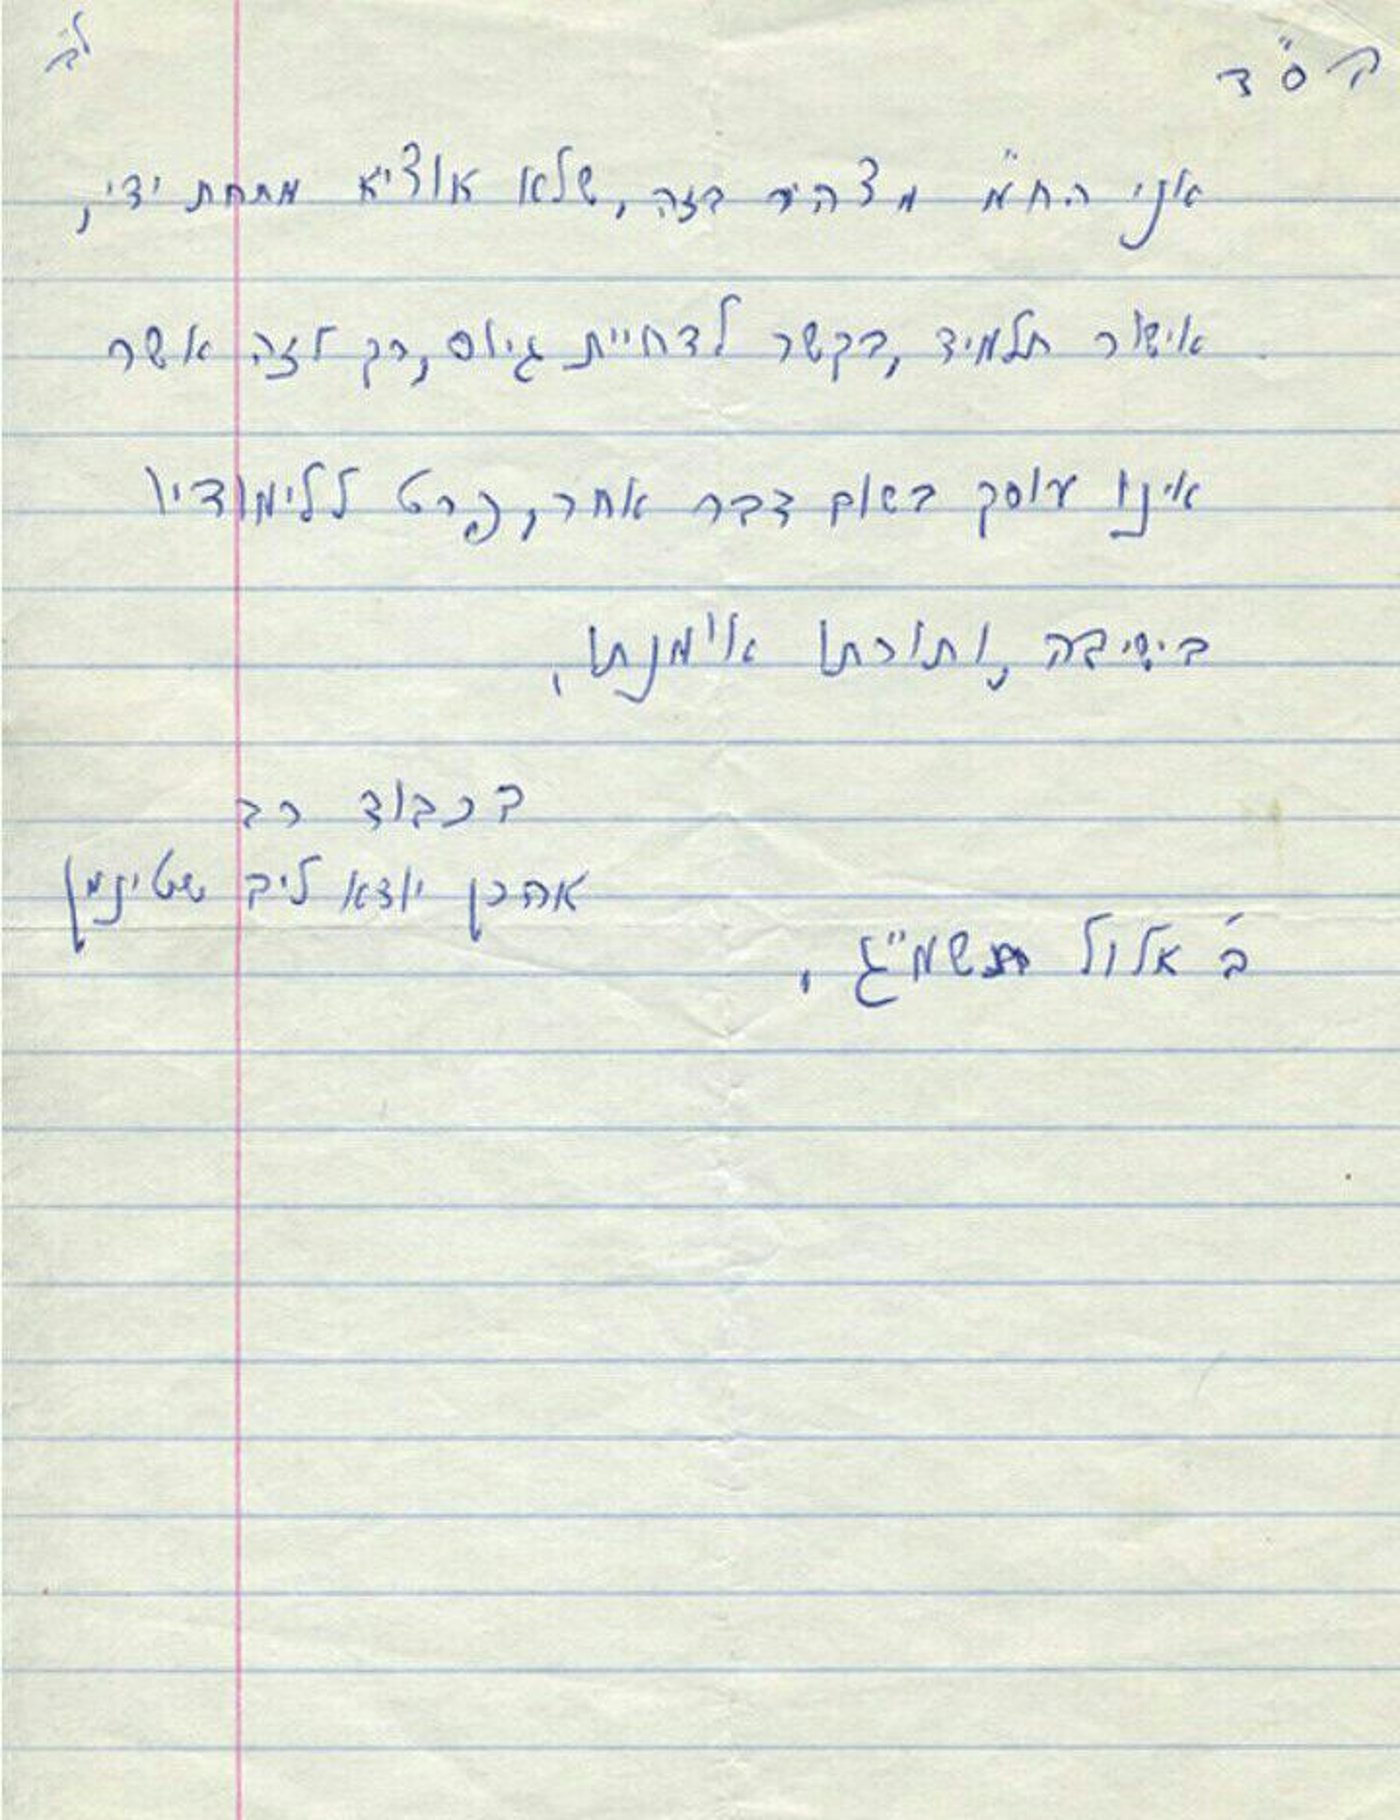 בס"ד
אני הח"מ מצהיר בזה, שלא אוציא מתחת ידי,
אישור תלמיד, בקשר לדחיית גיוס, רק לזה אשר
אינו עוסק בשום דבר אחר, פרט ללימודיו
בישיבה, ותורתו אומנתו.
בכבוד רב
אהרן יודא ליב שטינמן
ב' אלול תשמ"ג.